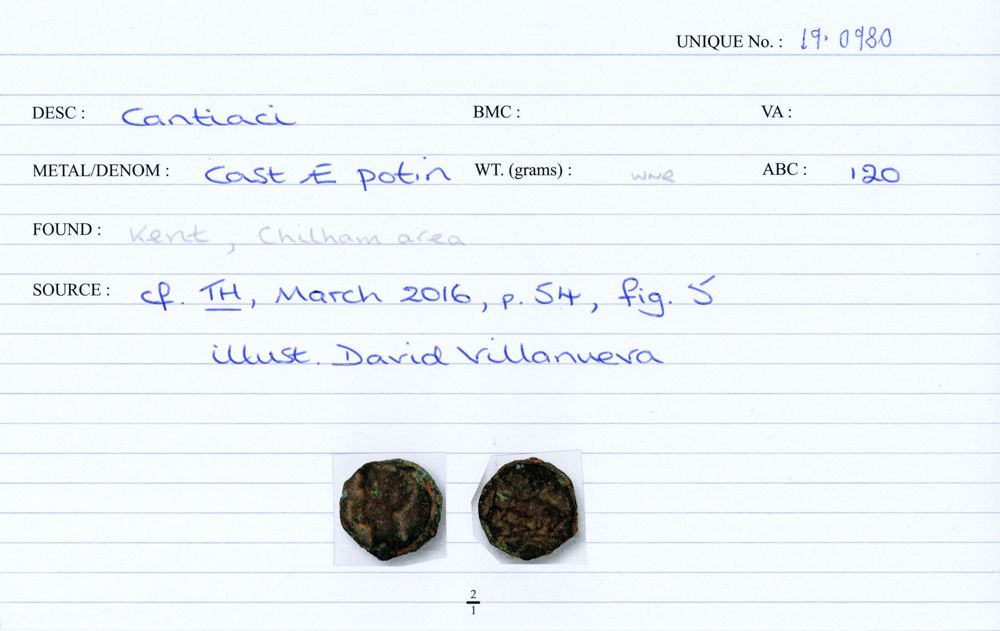 UNIQUE No. : 19.0980
DESC : Cantiaci BMC : VA :
METAL/DENOM : Cast Æ potin WT. (grams) : WNR ABC : 120
FOUND : Kent, Chilham area
SOURCE : cf. TH, March 2016, p. 54, fig. 5
illust. David Villanueva
2
1